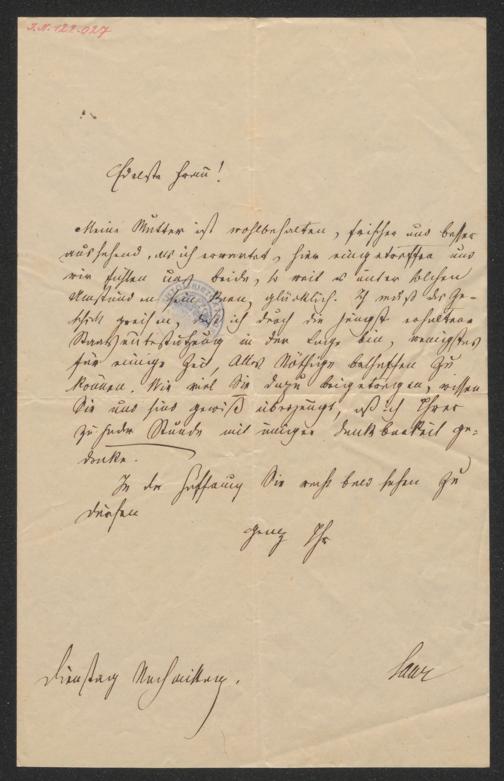 I.N. 122.027
Edelste Frau!
Meine Mutter ist wohlbehalten, frischer und besser
aussehend, als ich erwartet, hier eingetroffen und
wir fühlen uns beide, so weit es unter solchen
Umständen sein kann, glücklich. Ich muß das Ge-
schick preisen, daß ich durch die jüngst erhaltene
Staatsunterstützung in der Lage bin, wenigstens
für einige Zeit, Alles Nöthige beschaffen zu
können. Wie viel Sie dazu beigetragen, wissen
Sie und sind gewiß überzeugt, daß ich Ihrer
zu jeder Stunde mit inniger Dankbarkeit ge-
denke.
In der Hoffnung Sie recht bald sehen zu
dürfen
ganz Ihr
Saar
Dienstag Nachmittag.